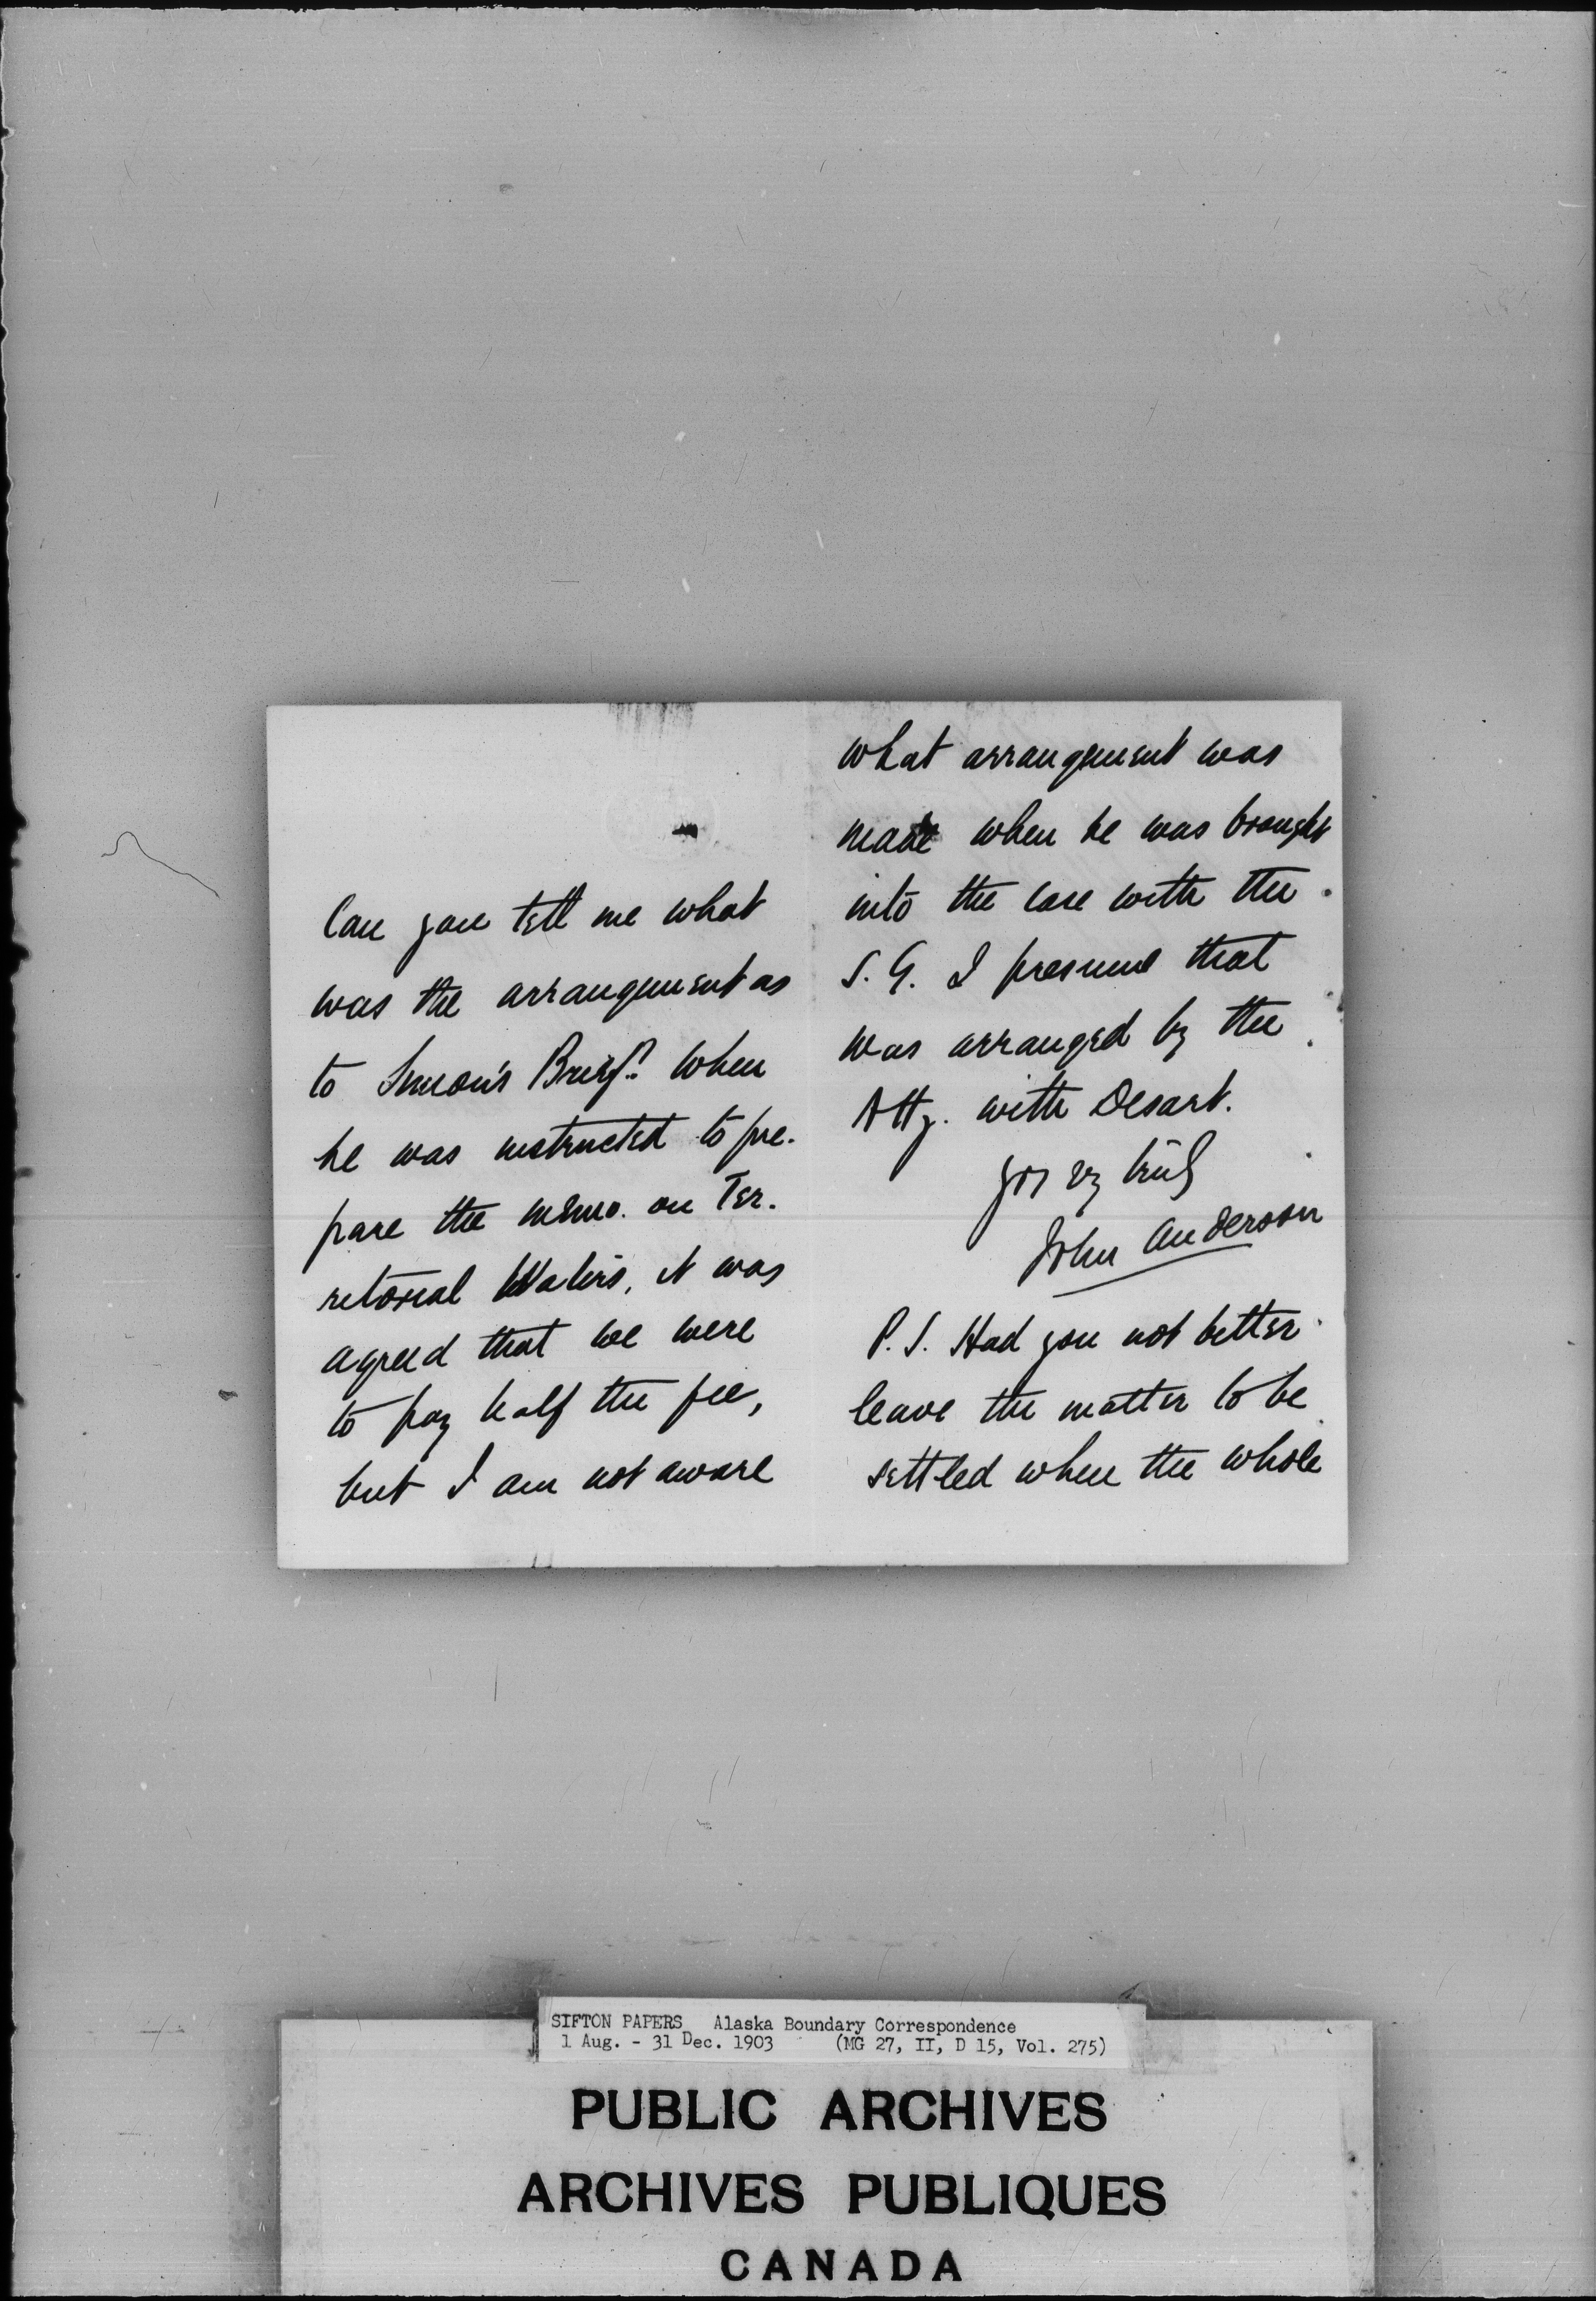 Can you tell me what
was the arrangement as
to Simon's Brief? When
he was instructed to pre-
pare the memo. on Ter-
ritorial Waters, it was
agreed that we were
to pay half the fee,
but I am not aware
what arrangement was
made when he was brought
into the case with the
S. G. I presume that
was arranged by the
Atty. with Desart.
yrs vy truly
John Anderson
P. S. Had you not better
leave the matter to be
settled when the whole
SIFTON PAPERS Alaska Boundary Correspondence
1 Aug. - 31 Dec. 1903 (MG 27, II, D 15, Vol. 275)
PUBLIC ARCHIVES
ARCHIVES PUBLIQUES
CANADA